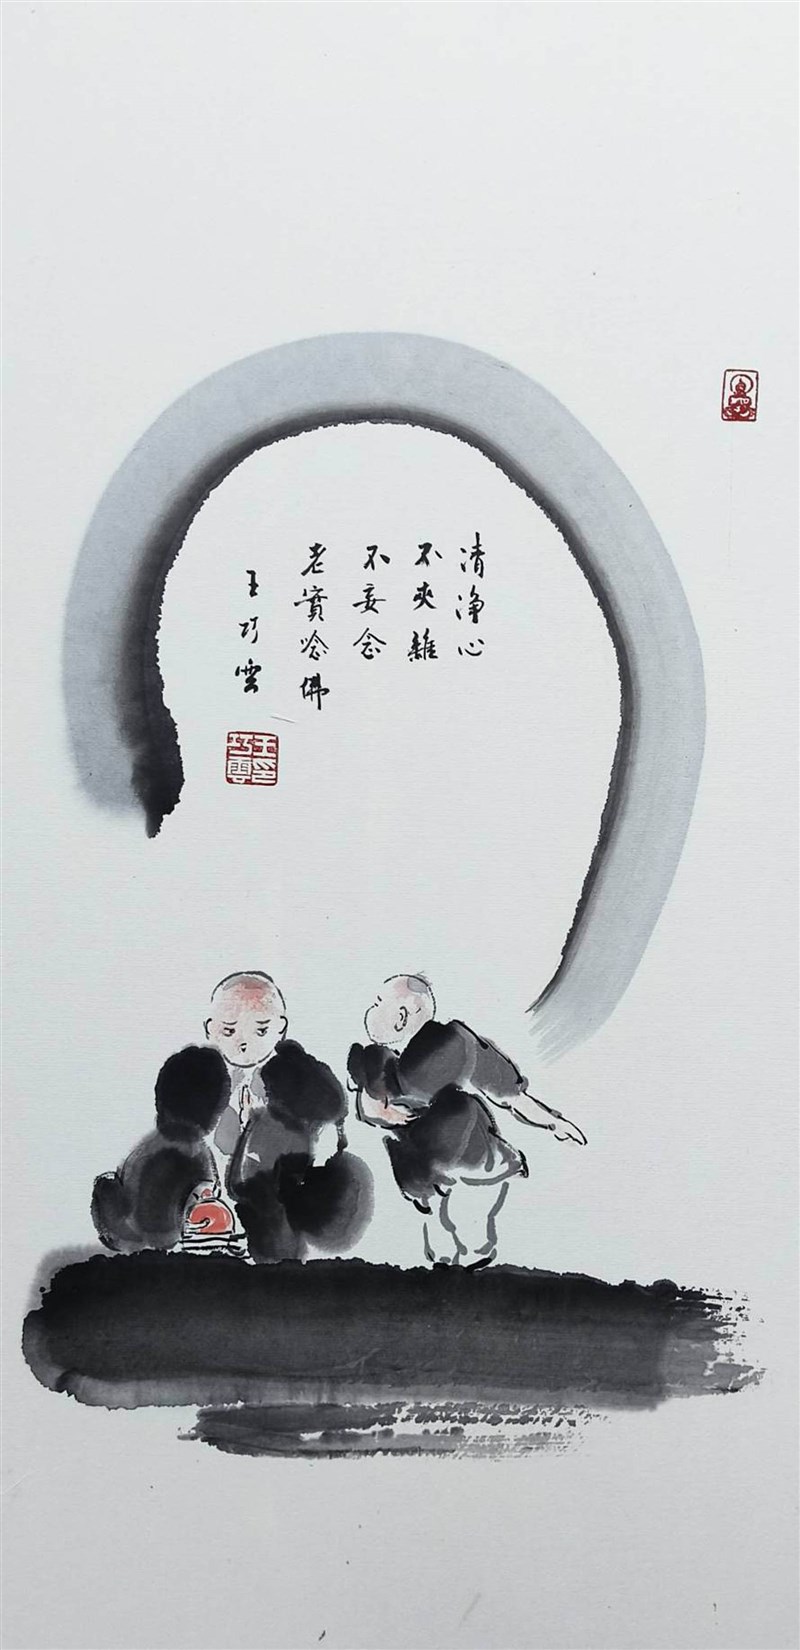 清净心
不夾雜
不妄念
老實念佛
王巧雲
王巧雲印